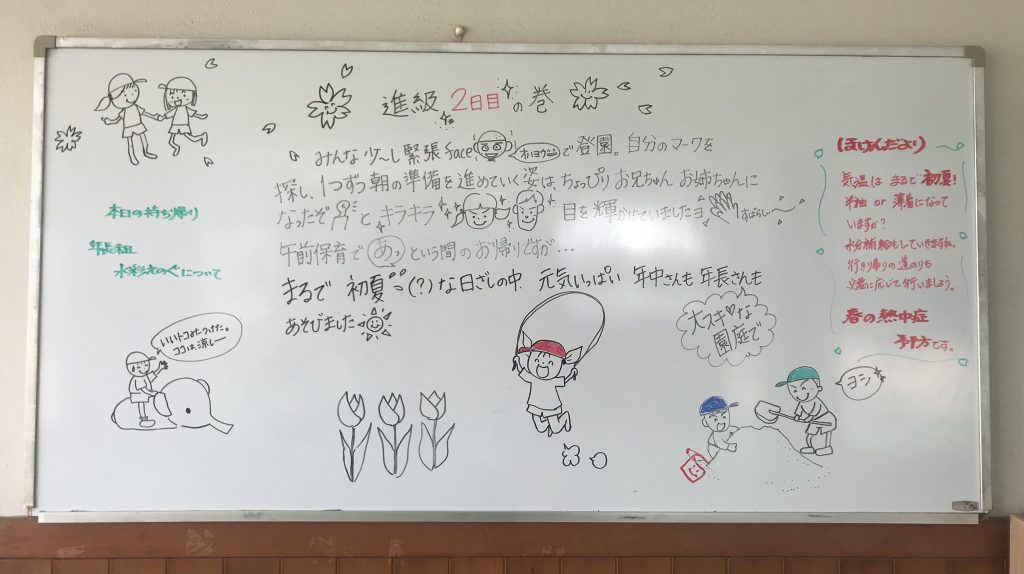 進級 2日目の巻
みんな 少〜し 緊張 face オハヨウ で 登園。 自分のマークを
探し、1つずつ 朝の準備を進めていく姿は、ちょっぴり お兄ちゃん お姉ちゃんに
なったぞ と キラキラ 目を輝かせていましたヨ すばらし〜
午前保育で あっ という間の お帰りですが…
まるで 初夏 (?) な 日ざしの中 元気いっぱい 年中さんも 年長さんも
あそびました
本日の持ち帰り
年長組
水彩えのぐについて
いいトコみたつけた。
ココは、涼し〜
大スキ♡な
園庭で
ヨシ
(ほけんだより)
気温は まるで 初夏!
半袖 or 薄着になって
いますか?
水分補給もしていきますね。
行き帰りの道のりも
に応じて 行いましょう。
春の熱中症
予防です。